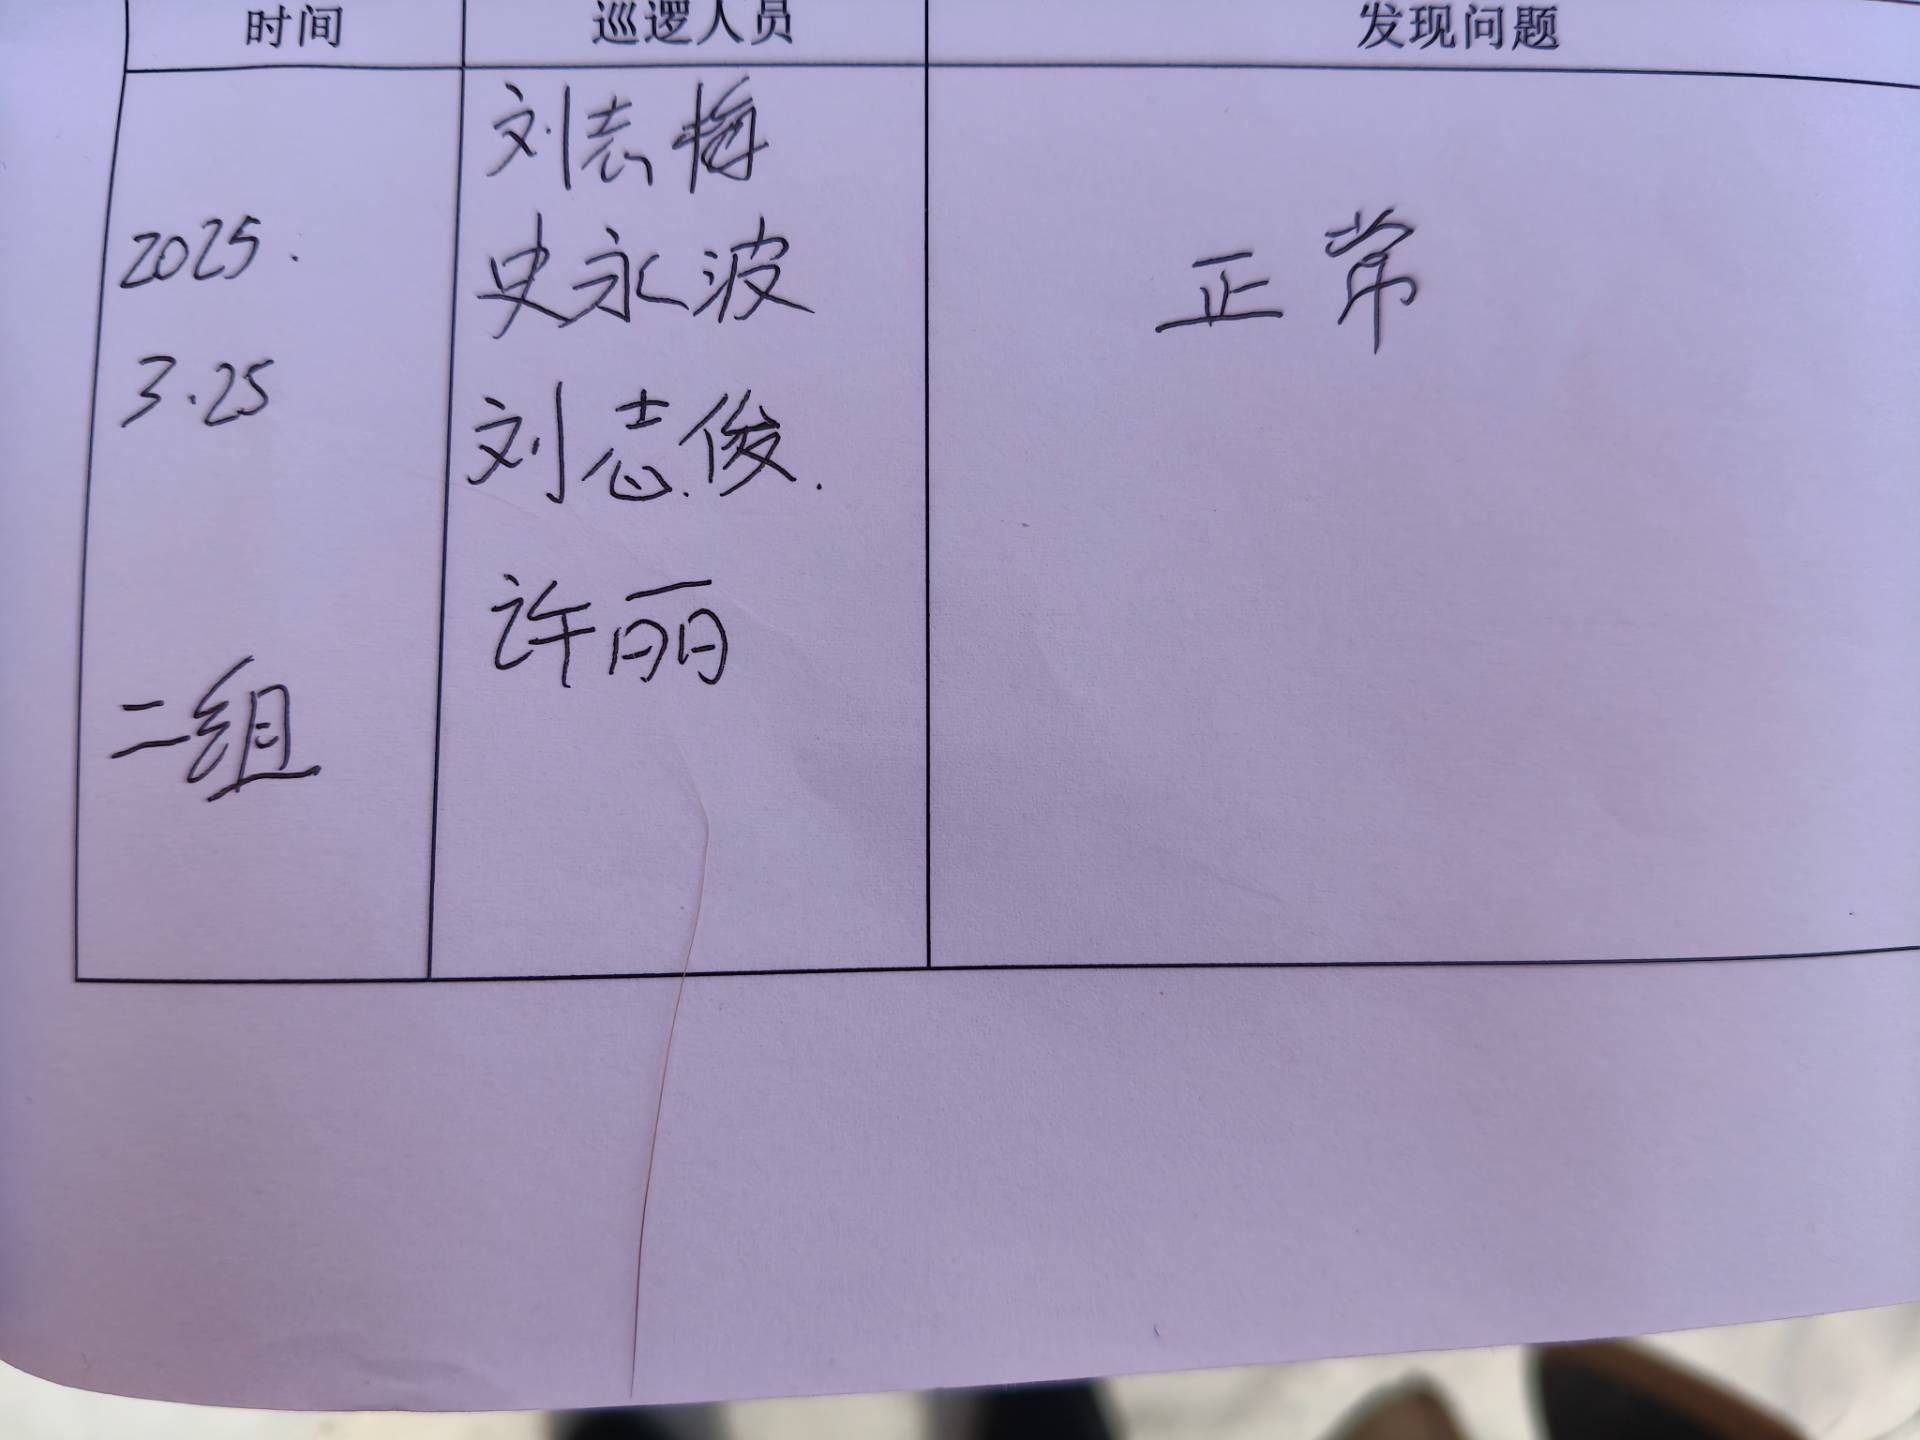 时间 巡逻人员 发现问题
刘志梅
2025. 史永波 正常
3.25 刘志俊.
许丽
二组